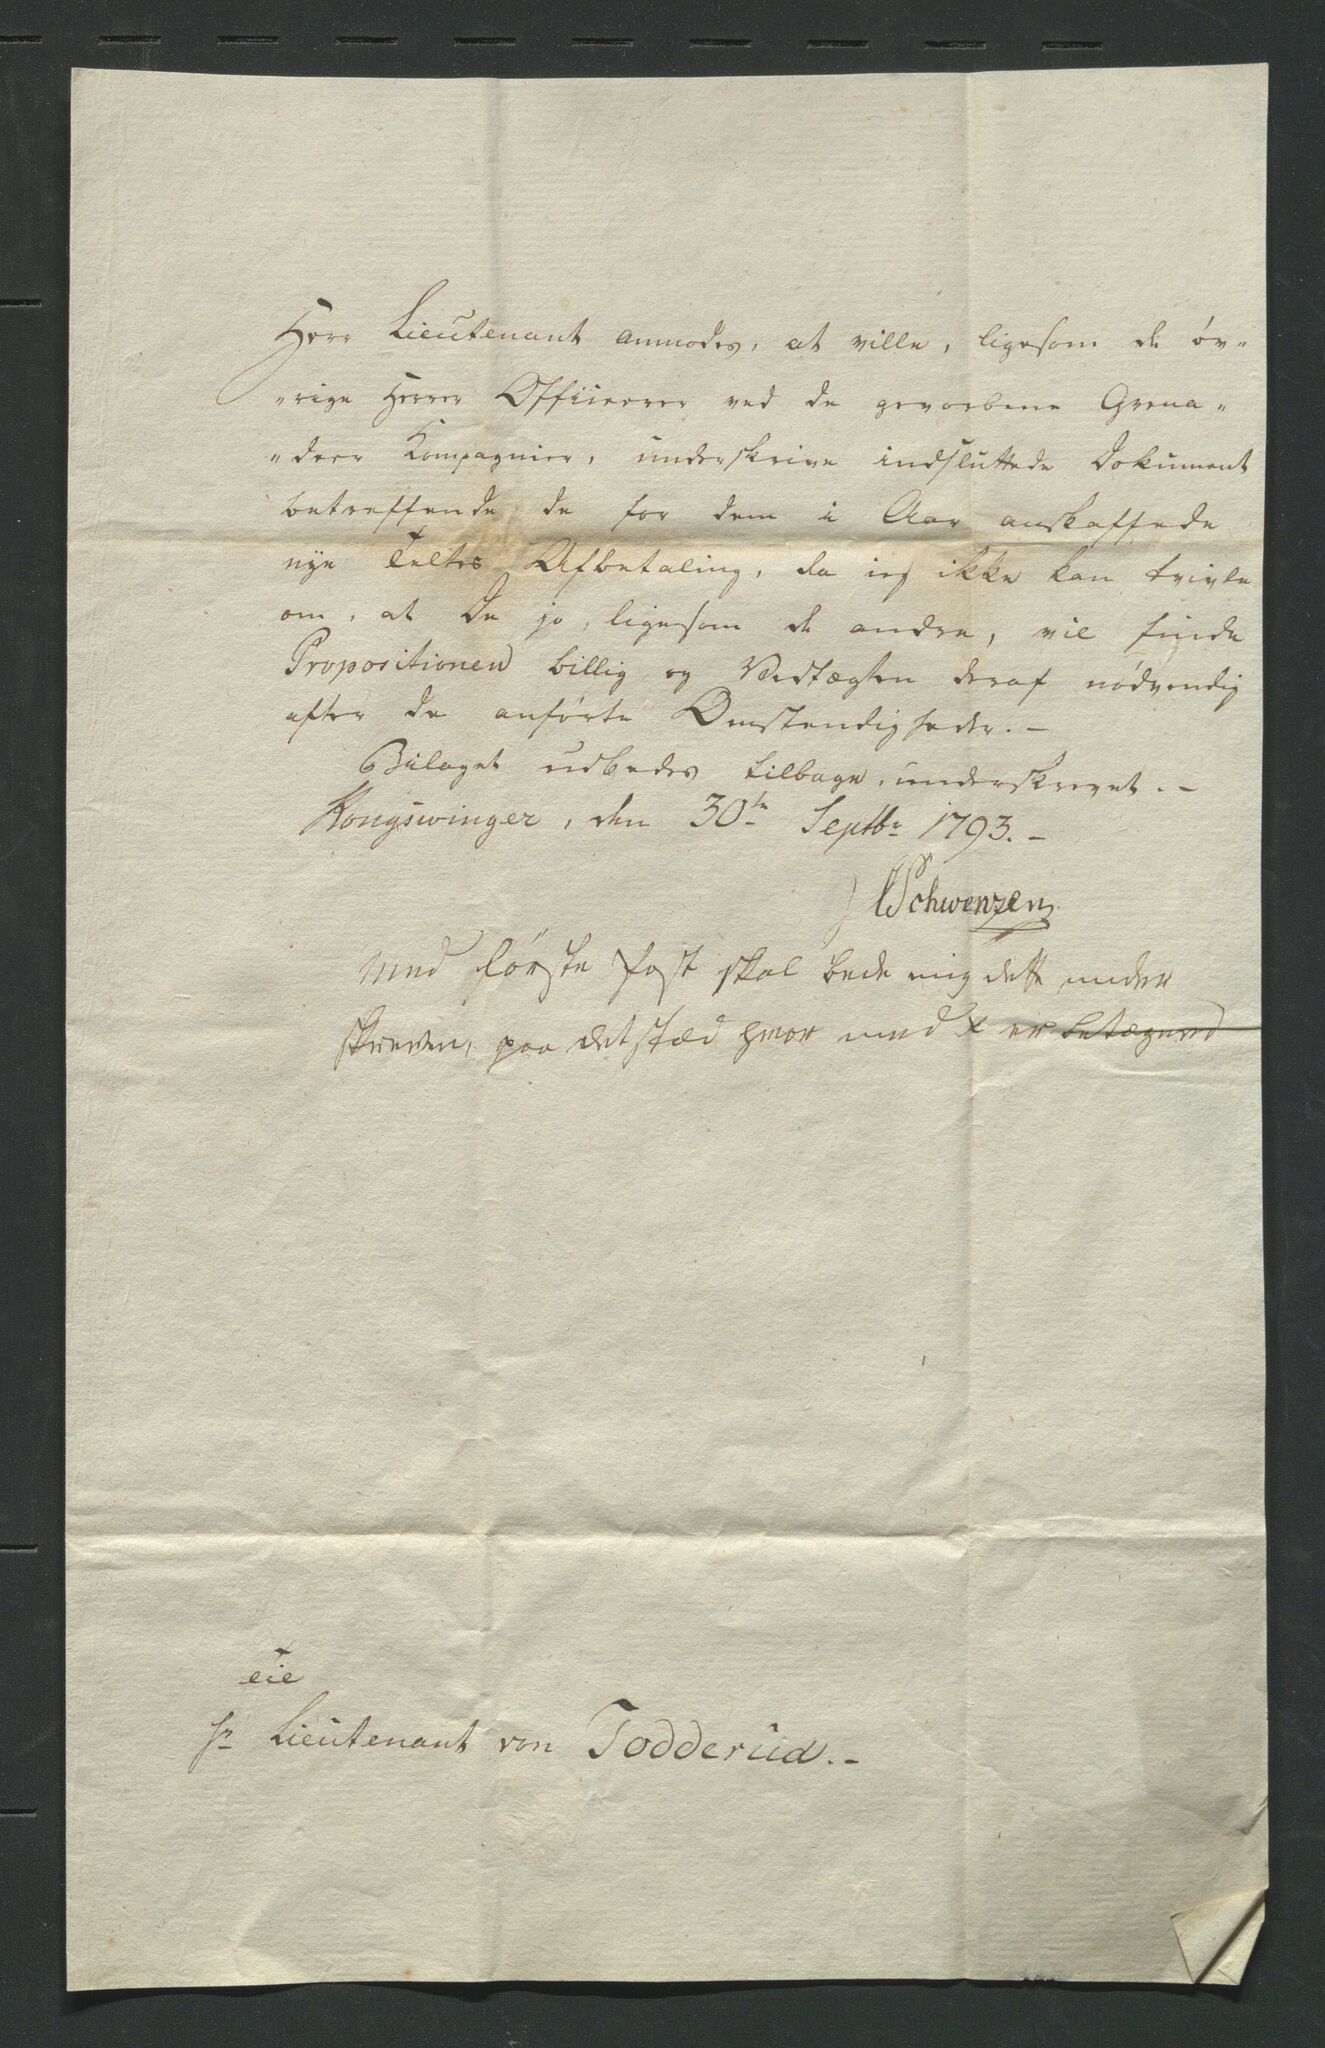 Herr Lieutenant anmodes, at ville, ligesom de øv„
„rige Herrer Officierer ved de gevorbene Grena„
„deer Kompagnier, underskrive indsluttede Dokument
betreffende de for dem i Aar anskaffede
nye Teltes Afbetaling, da ieg ikke kan tvivle
om, at De jo, ligesom de andre, vil finde
Propositionen billig og Vedtægten deraf nødvendig
efter de anførte Omstendigheder. –
Bilaget udbedes tilbage, underskrevet. –
Kongswinger, den 30te Septbr 1793. –
Schwenzen
med første Post skal bede mig dette under
skreven, paa det stæd hvor med x er betægned
Til
Hr Lieutenant von Todderud. –